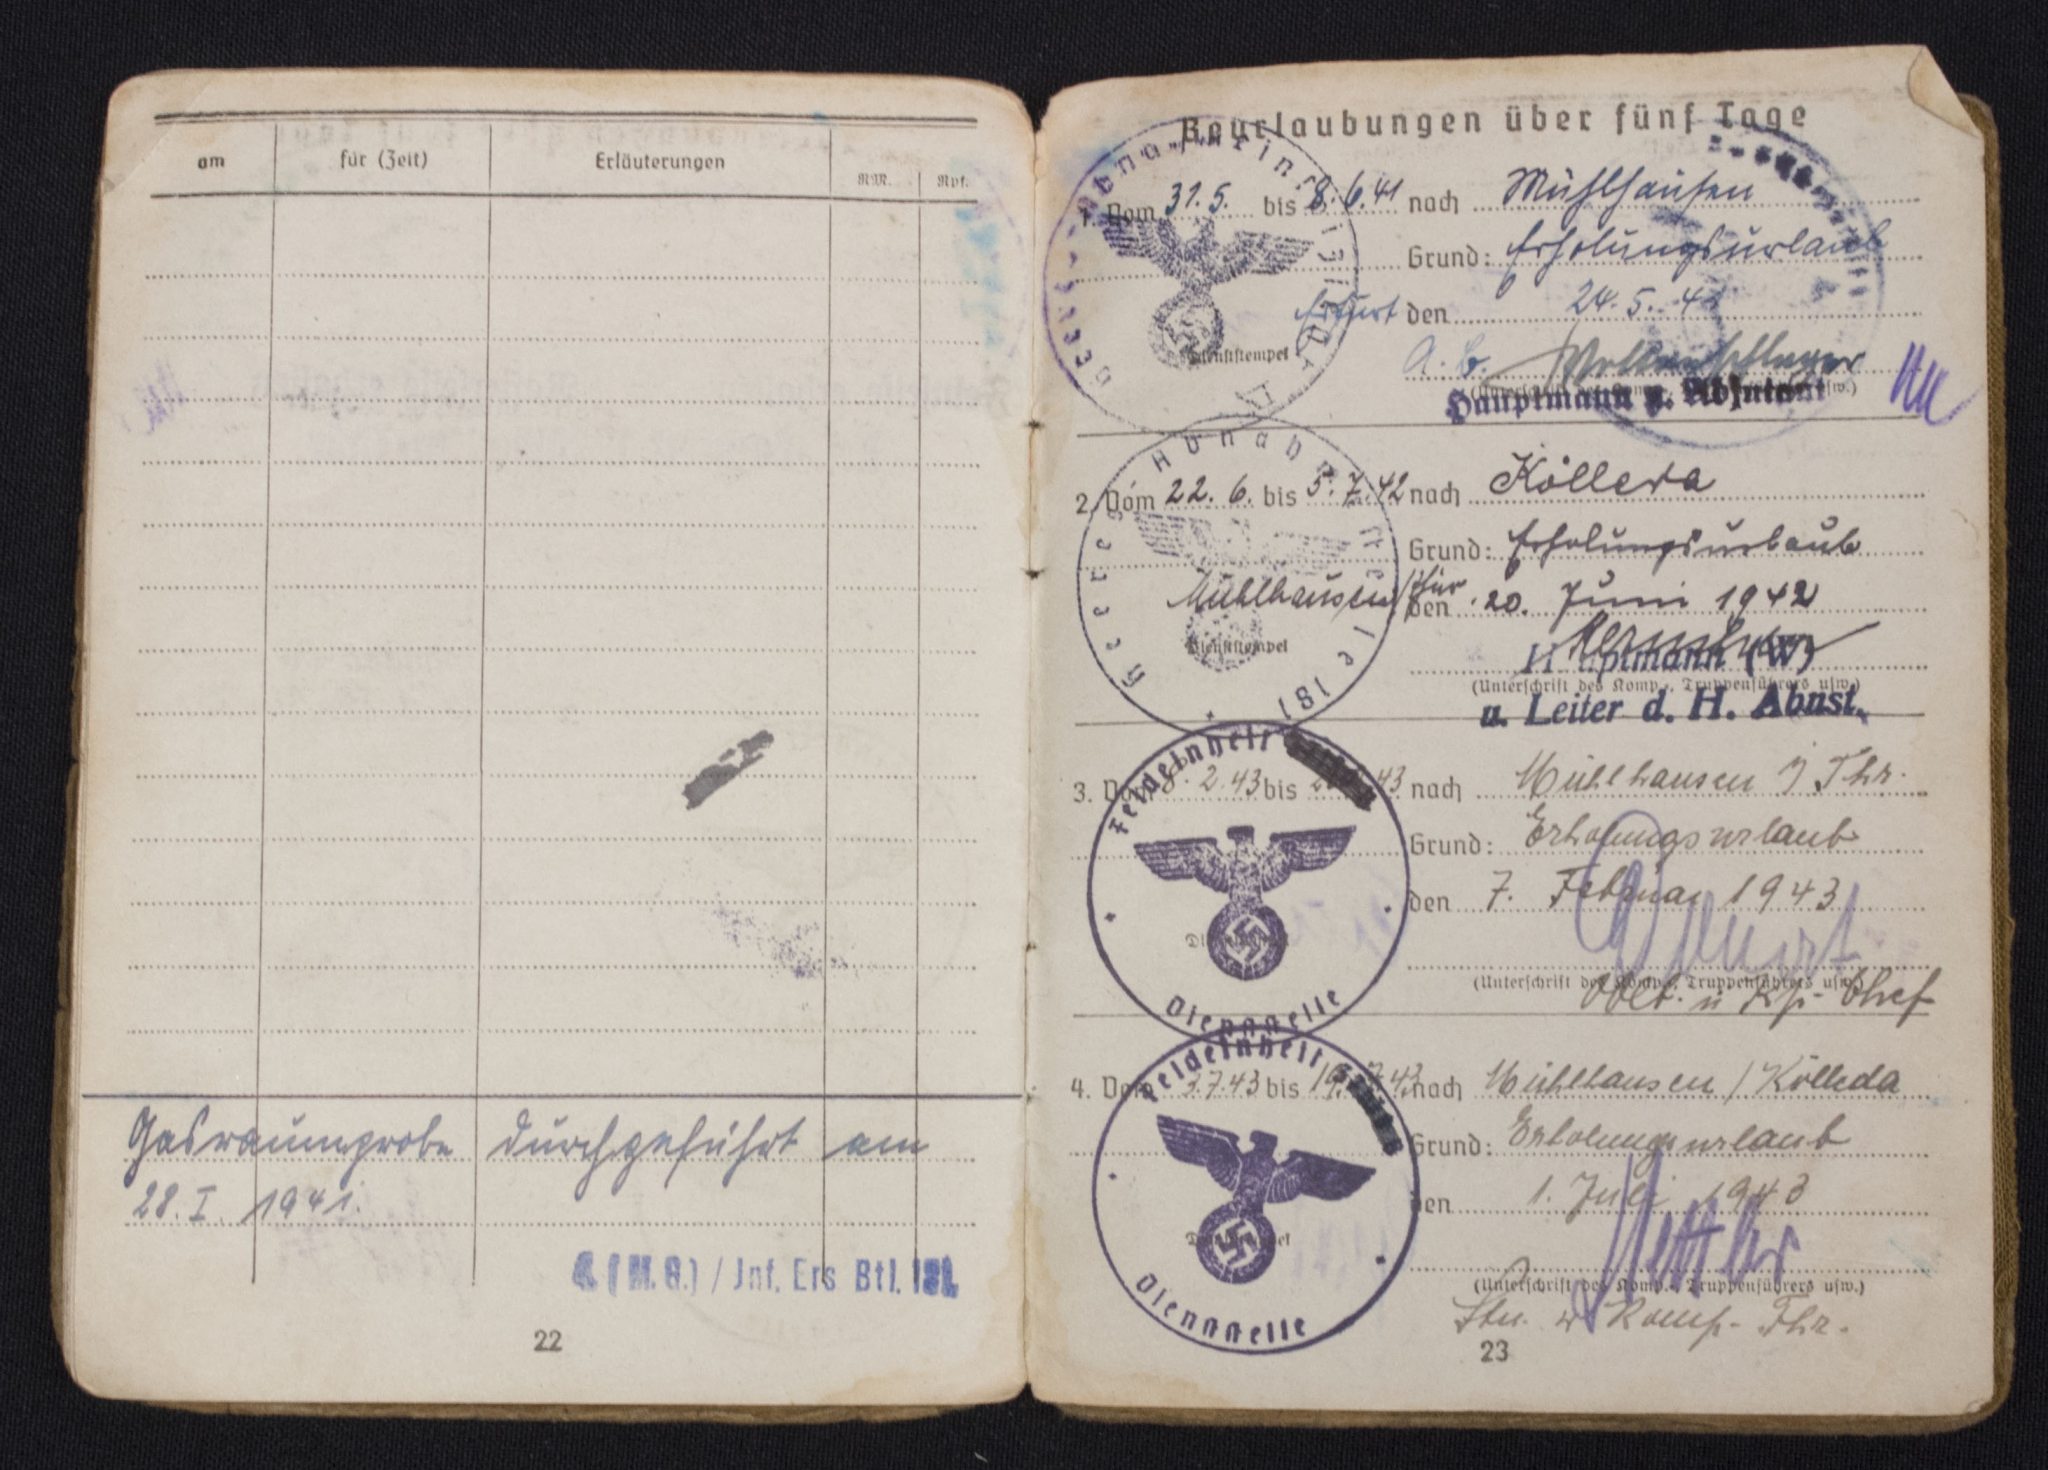 am für (Zeit) Erläuterungen RM. Rpf.
Gasraumprobe durchgeführt am
28. I. 1941.
4. (M.G.) / Inf. Ers Btl. 181.
22
Beurlaubungen über fünf Tage
1. Vom 31.5. bis 8.6.41 nach Mühlhausen
Grund: Erholungsurlaub
Erfurt den 24.5.41
Dienststempel
(Unterschrift des Komp., Truppenführers usw.)
Hauptmann u. Adjutant
Heeres Abnah
2. Vom 22.6. bis 5.7.42 nach Kölleda
Grund: Erholungsurlaub
Mühlhausen/Thür den 20. Juni 1942
Dienststempel
Hauptmann (W)
(Unterschrift des Komp., Truppenführers usw.)
u. Leiter d. H. Abnst.
181
Feldeinheit
3. Vom 8.2.43 bis 43 nach Mühlhausen i/ Thr.
Grund: Erholungsurlaub
den 7. Februar 1943
Dienststempel
(Unterschrift des Komp., Truppenführers usw.)
Oblt. u Kp.-Chef
Dienststelle
Feldeinheit
4. Vom 3.7.43 bis 19.7.43 nach Mühlhausen / Kölleda
Grund: Erholungsurlaub
den 1. Juli 1943
Dienststempel
(Unterschrift des Komp., Truppenführers usw.)
Dienststelle
Ltn. u Komp.-Fhr.
23